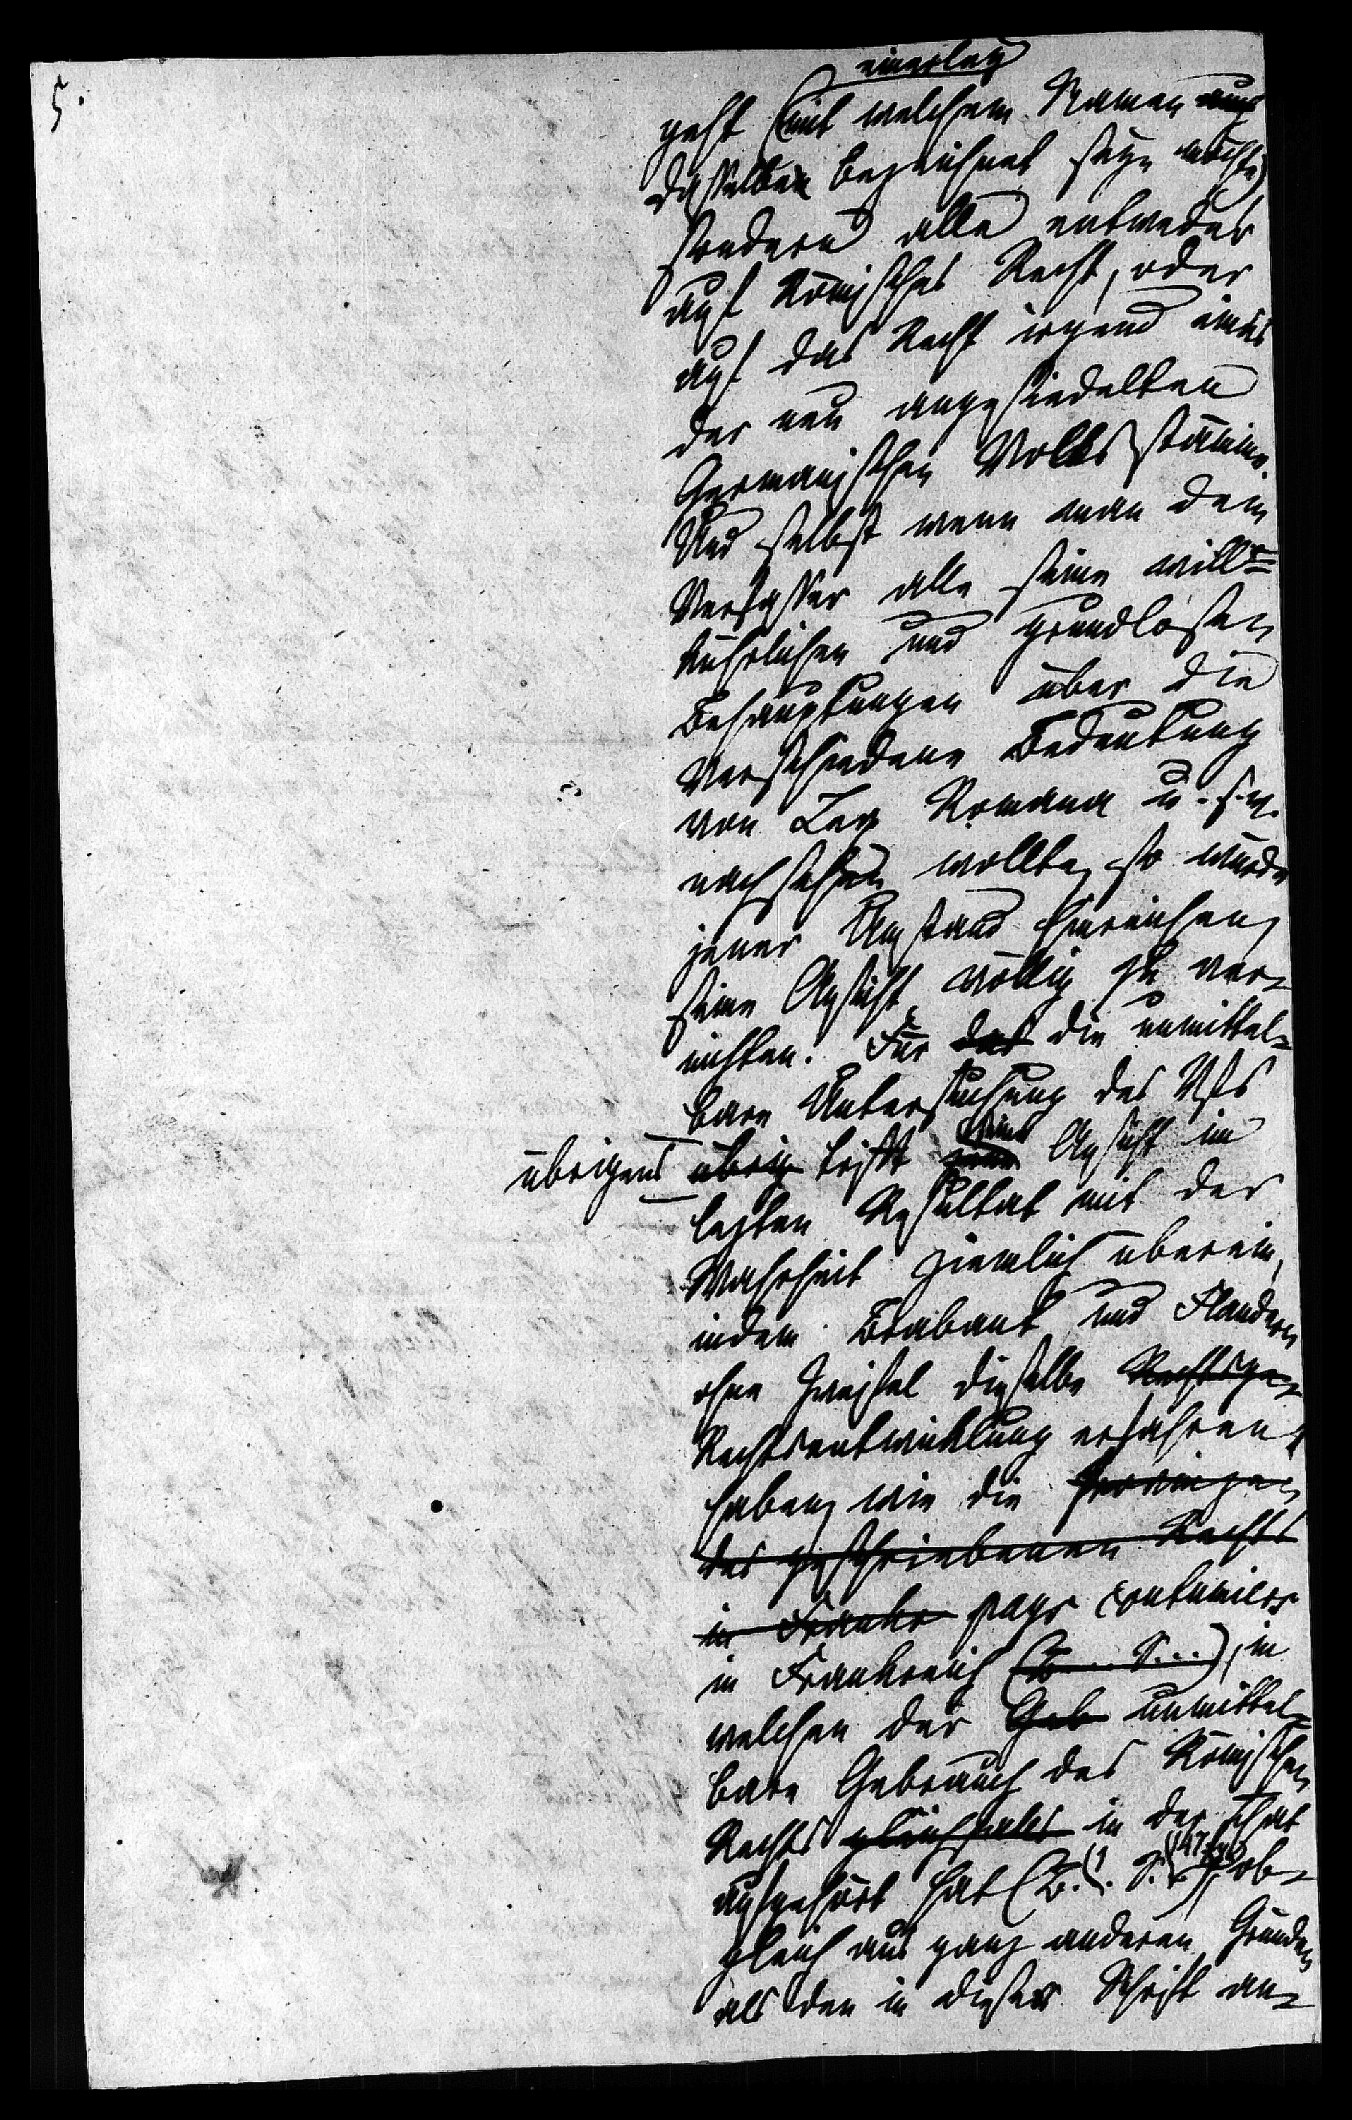 5.
einerley
geht (mit welchem Namen auch
dasselbe bezeichnet seyn möchte)
sondern alle entweder
auf Römisches Recht, oder
auf das Recht irgend eines
der neu angesiedelten
Germanischen Volksstämme.
Und selbst wenn man dem
Verfasser alle seine will=
kührlichen und grundlosen
Behauptungen über die
verschiedene Bedeutung
von Lex Romana u. s. w.
nachsehen wollte, so würde
jener Umstand hinreichen
seine Ansicht völlig zu ver-
nichten. Für das die unmittel=
bare Untersuchung des Vfs
übrigens übrig trifft seine Ansicht im
letzten Resultat mit der
Wahrheit ziemlich überein,
indem Brabant und Flandern
ohne Zweifel dieselbe Rechtsge-
Rechtsentwicklung erfahren
haben, wie die Provinzen
des geschriebenen Rechts
in Frankr pays coutumiers
in Frankreich (B... S...), in
welchen der Geb unmittel=
bare Gebrauch des Römischen
Rechts gleichfalls in der That
aufgehört hat (B. 1. S. ) ob-
gleich aus ganz anderen Gründen
als den in dieser Schrift an-